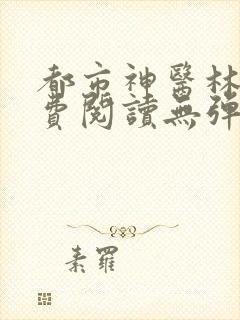 都市神醫林
費閱讀無彈
素羅